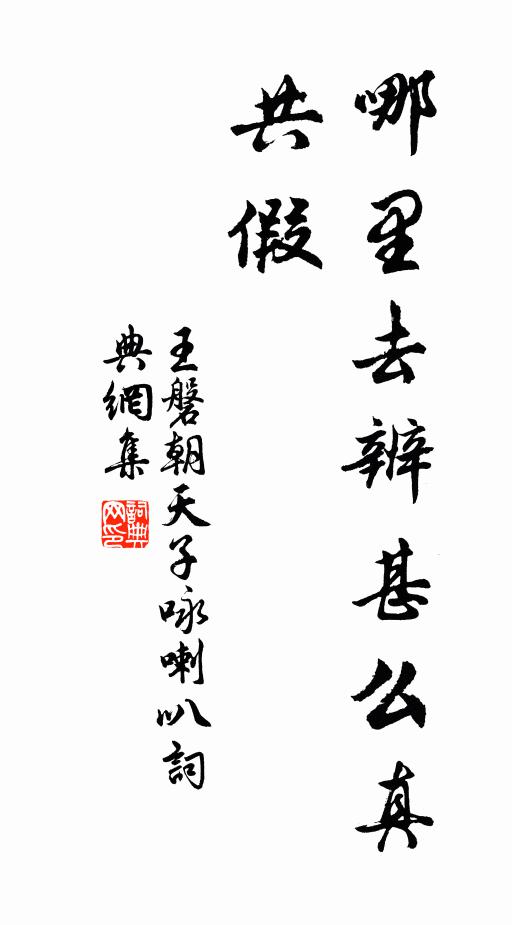 哪里去辨甚么真
共假
王磐朝天子咏喇叭詞
典網集
詞典
网印